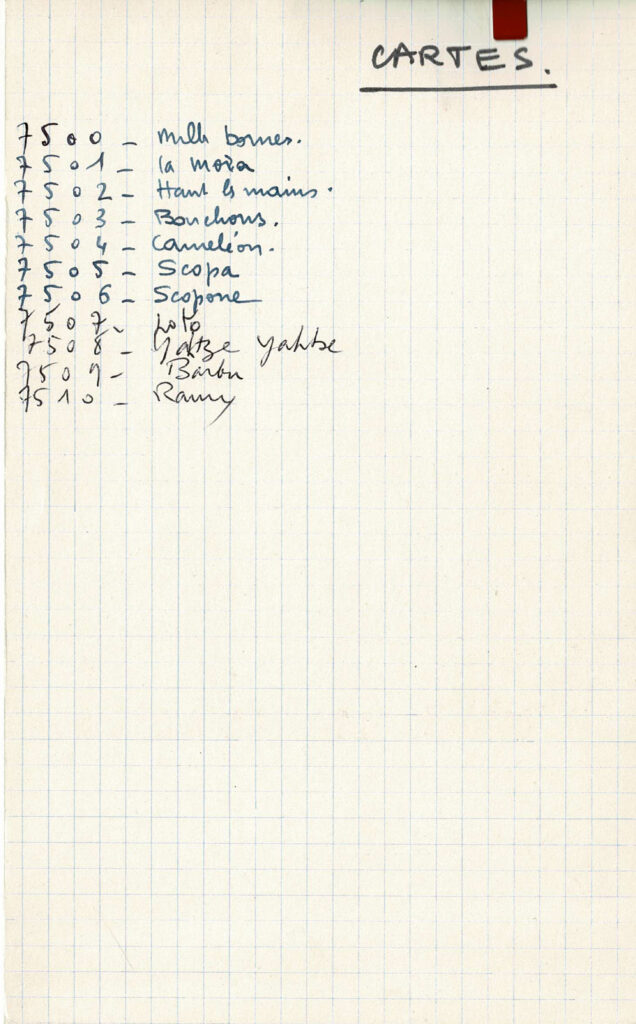 CARTES.
7500 - Mille bornes.
7501 - la mora
7502 - Haut les mains.
7503 - Bouchons.
7504 - Caméléon.
7505 - Scopa
7506 - Scopone
7507 - Loto
7508 - Yatze yahtse
7509 - Barbu
7510 - Ramy